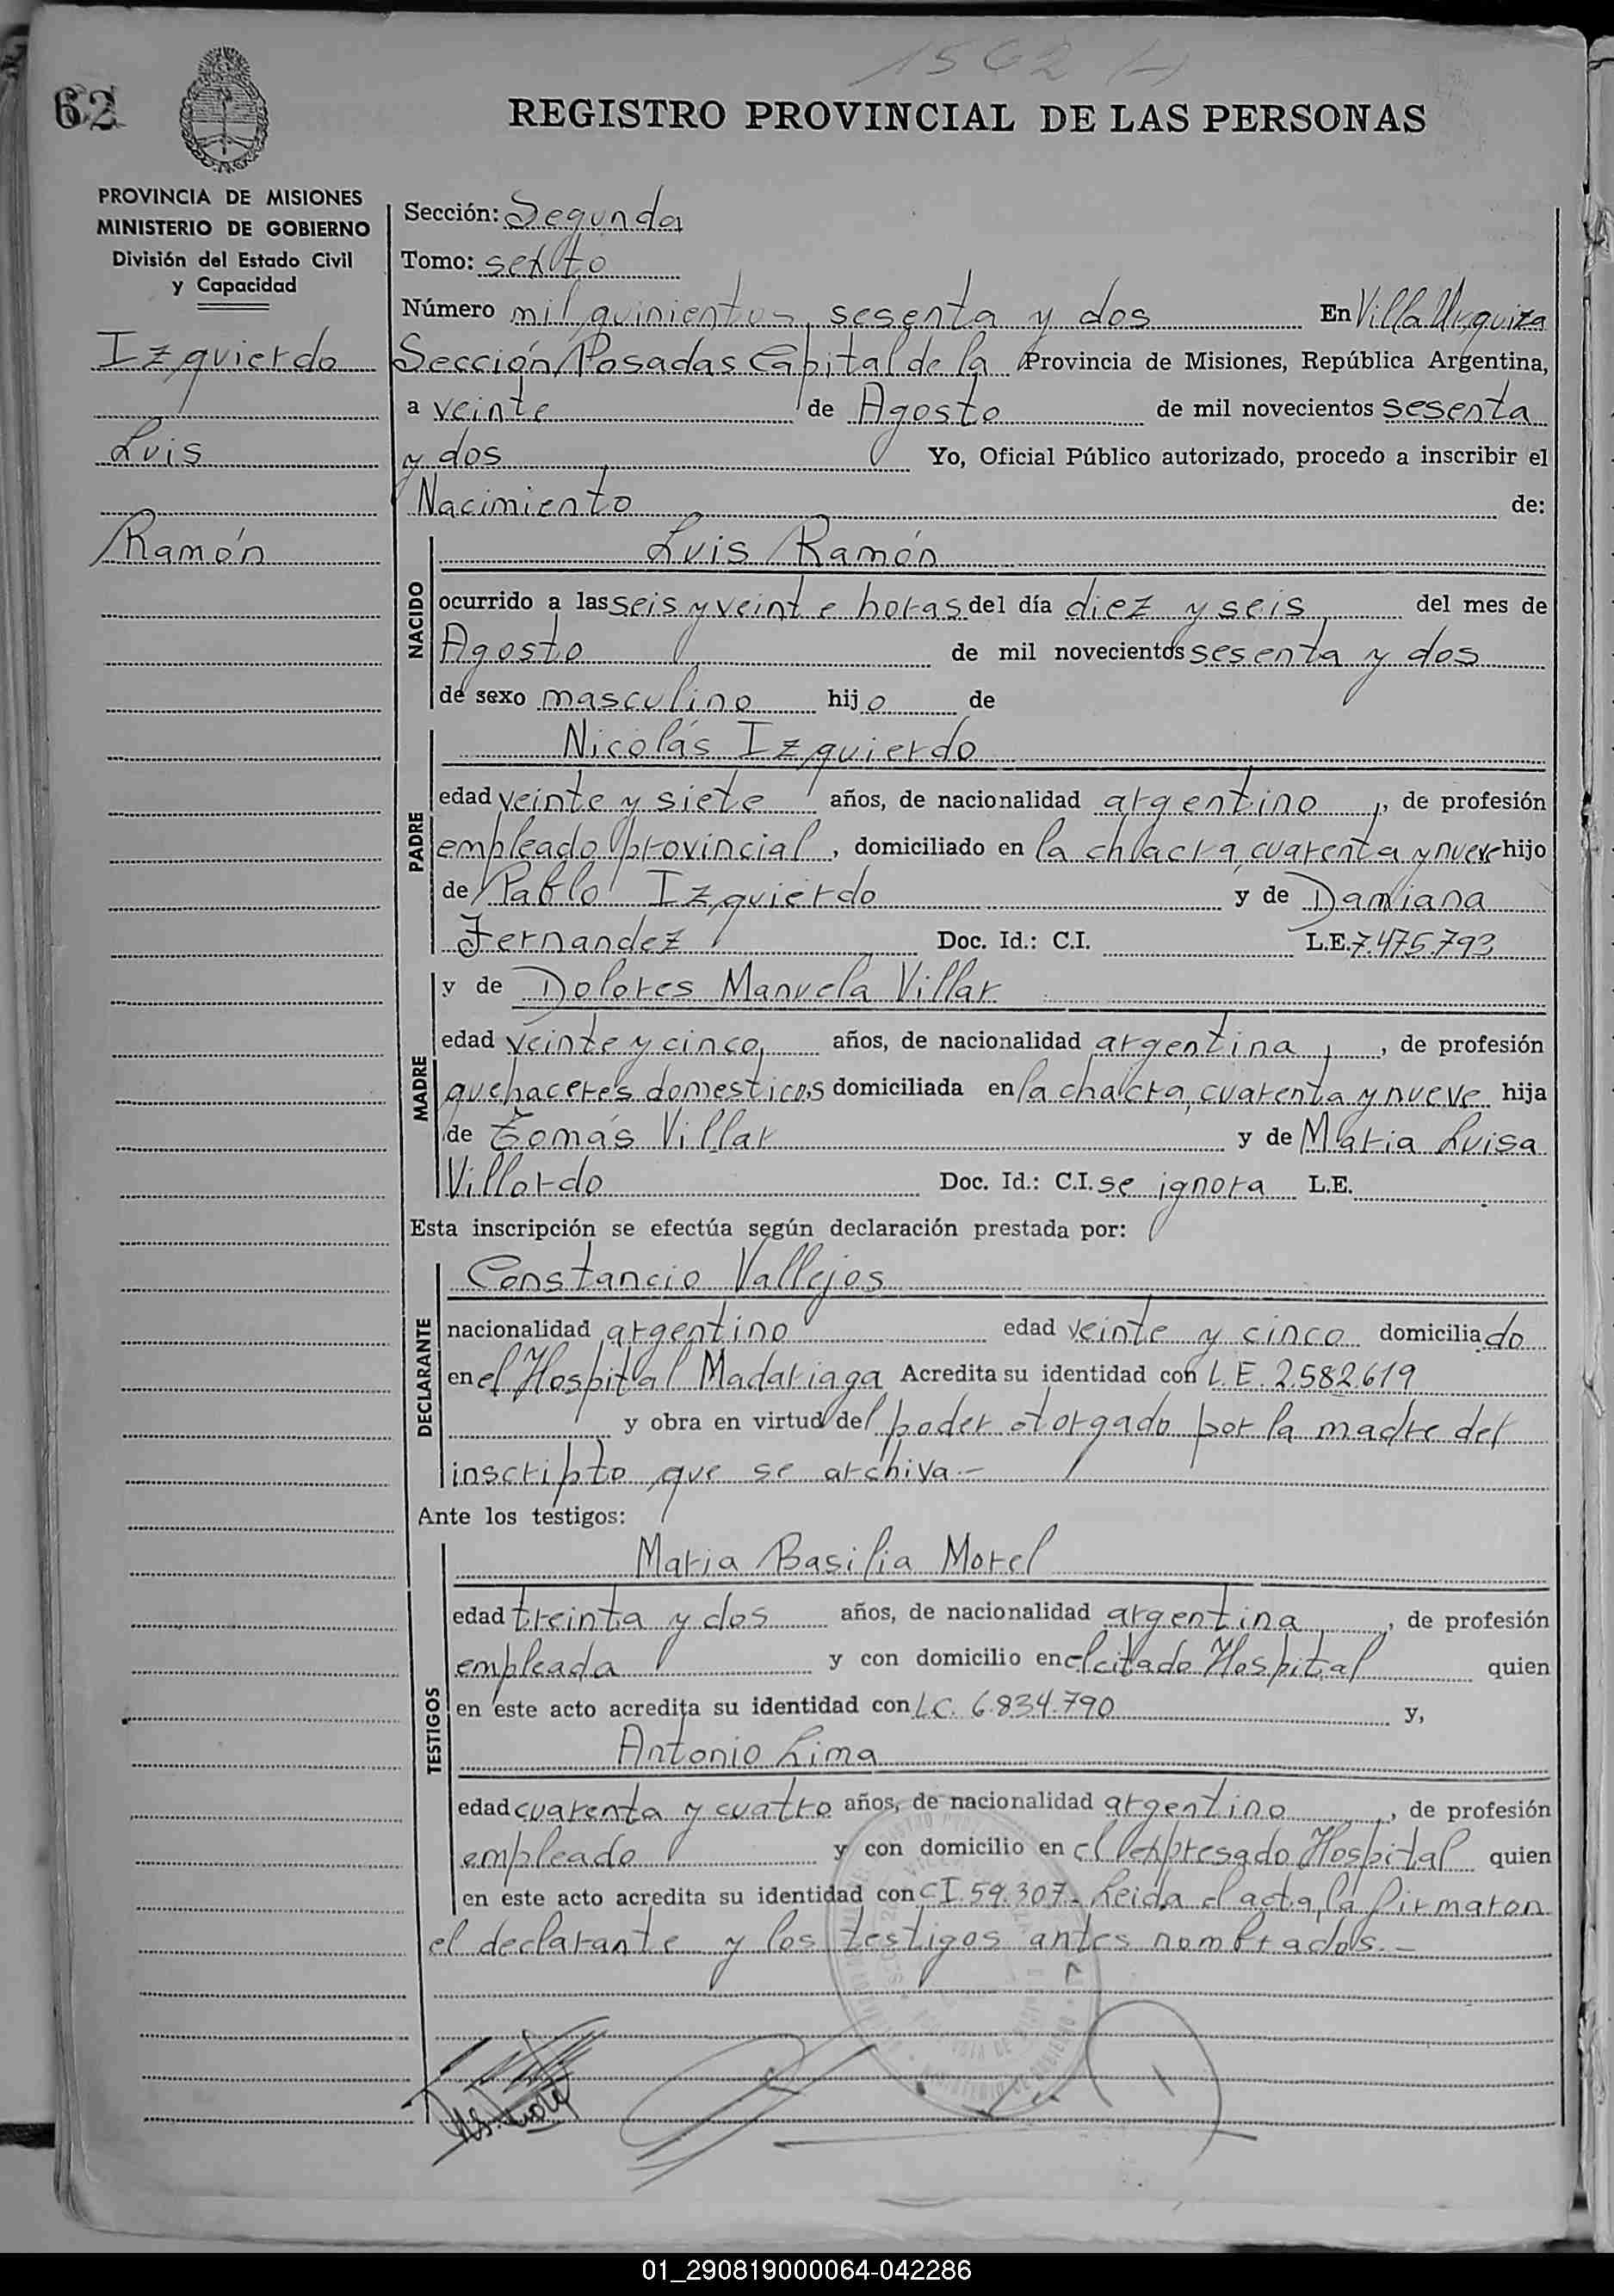 1562
62
REGISTRO PROVINCIAL DE LAS PERSONAS
PROVINCIA DE MISIONES
MINISTERIO DE GOBIERNO
División del Estado Civil
y Capacidad
Izquierdo
Luis
Ramón
Sección: Segunda
Tomo: sexto
Número mil quinientos sesenta y dos En Villa Urquiza
Sección Posadas Capital de la Provincia de Misiones, República Argentina,
a veinte de Agosto de mil novecientos sesenta
y dos Yo, Oficial Público autorizado, procedo a inscribir el
Nacimiento de:
NACIDO
Luis Ramón
ocurrido a las seis y veinte horas del día diez y seis del mes de
Agosto de mil novecientos sesenta y dos
de sexo masculino hijo de
PADRE
Nicolás Izquierdo
edad veinte y siete años, de nacionalidad argentino, de profesión
empleado provincial, domiciliado en la chacra cuarenta y nueve hijo
de Pablo Izquierdo y de Damiana
Fernandez Doc. Id.: C.I. L.E. 7.475.793
MADRE
y de Dolores Manuela Villar
edad veinte y cinco años, de nacionalidad argentina, de profesión
quehaceres domesticos domiciliada en la chacra cuarenta y nueve hija
de Tomás Villar y de Maria Luisa
Villordo Doc. Id.: C.I. se ignora L.E.
Esta inscripción se efectúa según declaración prestada por:
DECLARANTE
Constancio Vallejos
nacionalidad argentino edad veinte y cinco domiciliado
en el Hospital Madariaga Acredita su identidad con L.E. 2.582.619
y obra en virtud del poder otorgado por la madre del
inscripto que se archiva.-
Ante los testigos:
TESTIGOS
Maria Basilia Morel
edad treinta y dos años, de nacionalidad argentina, de profesión
empleada y con domicilio en el citado Hospital quien
en este acto acredita su identidad con L.C. 6.834.790 y,
Antonio Lima
edad cuarenta y cuatro años, de nacionalidad argentino, de profesión
empleado y con domicilio en el expresado Hospital quien
en este acto acredita su identidad con C.I. 59.307.- Leida el acta, la firmaron
el declarante y los testigos antes nombrados.-
01_290819000064-042286